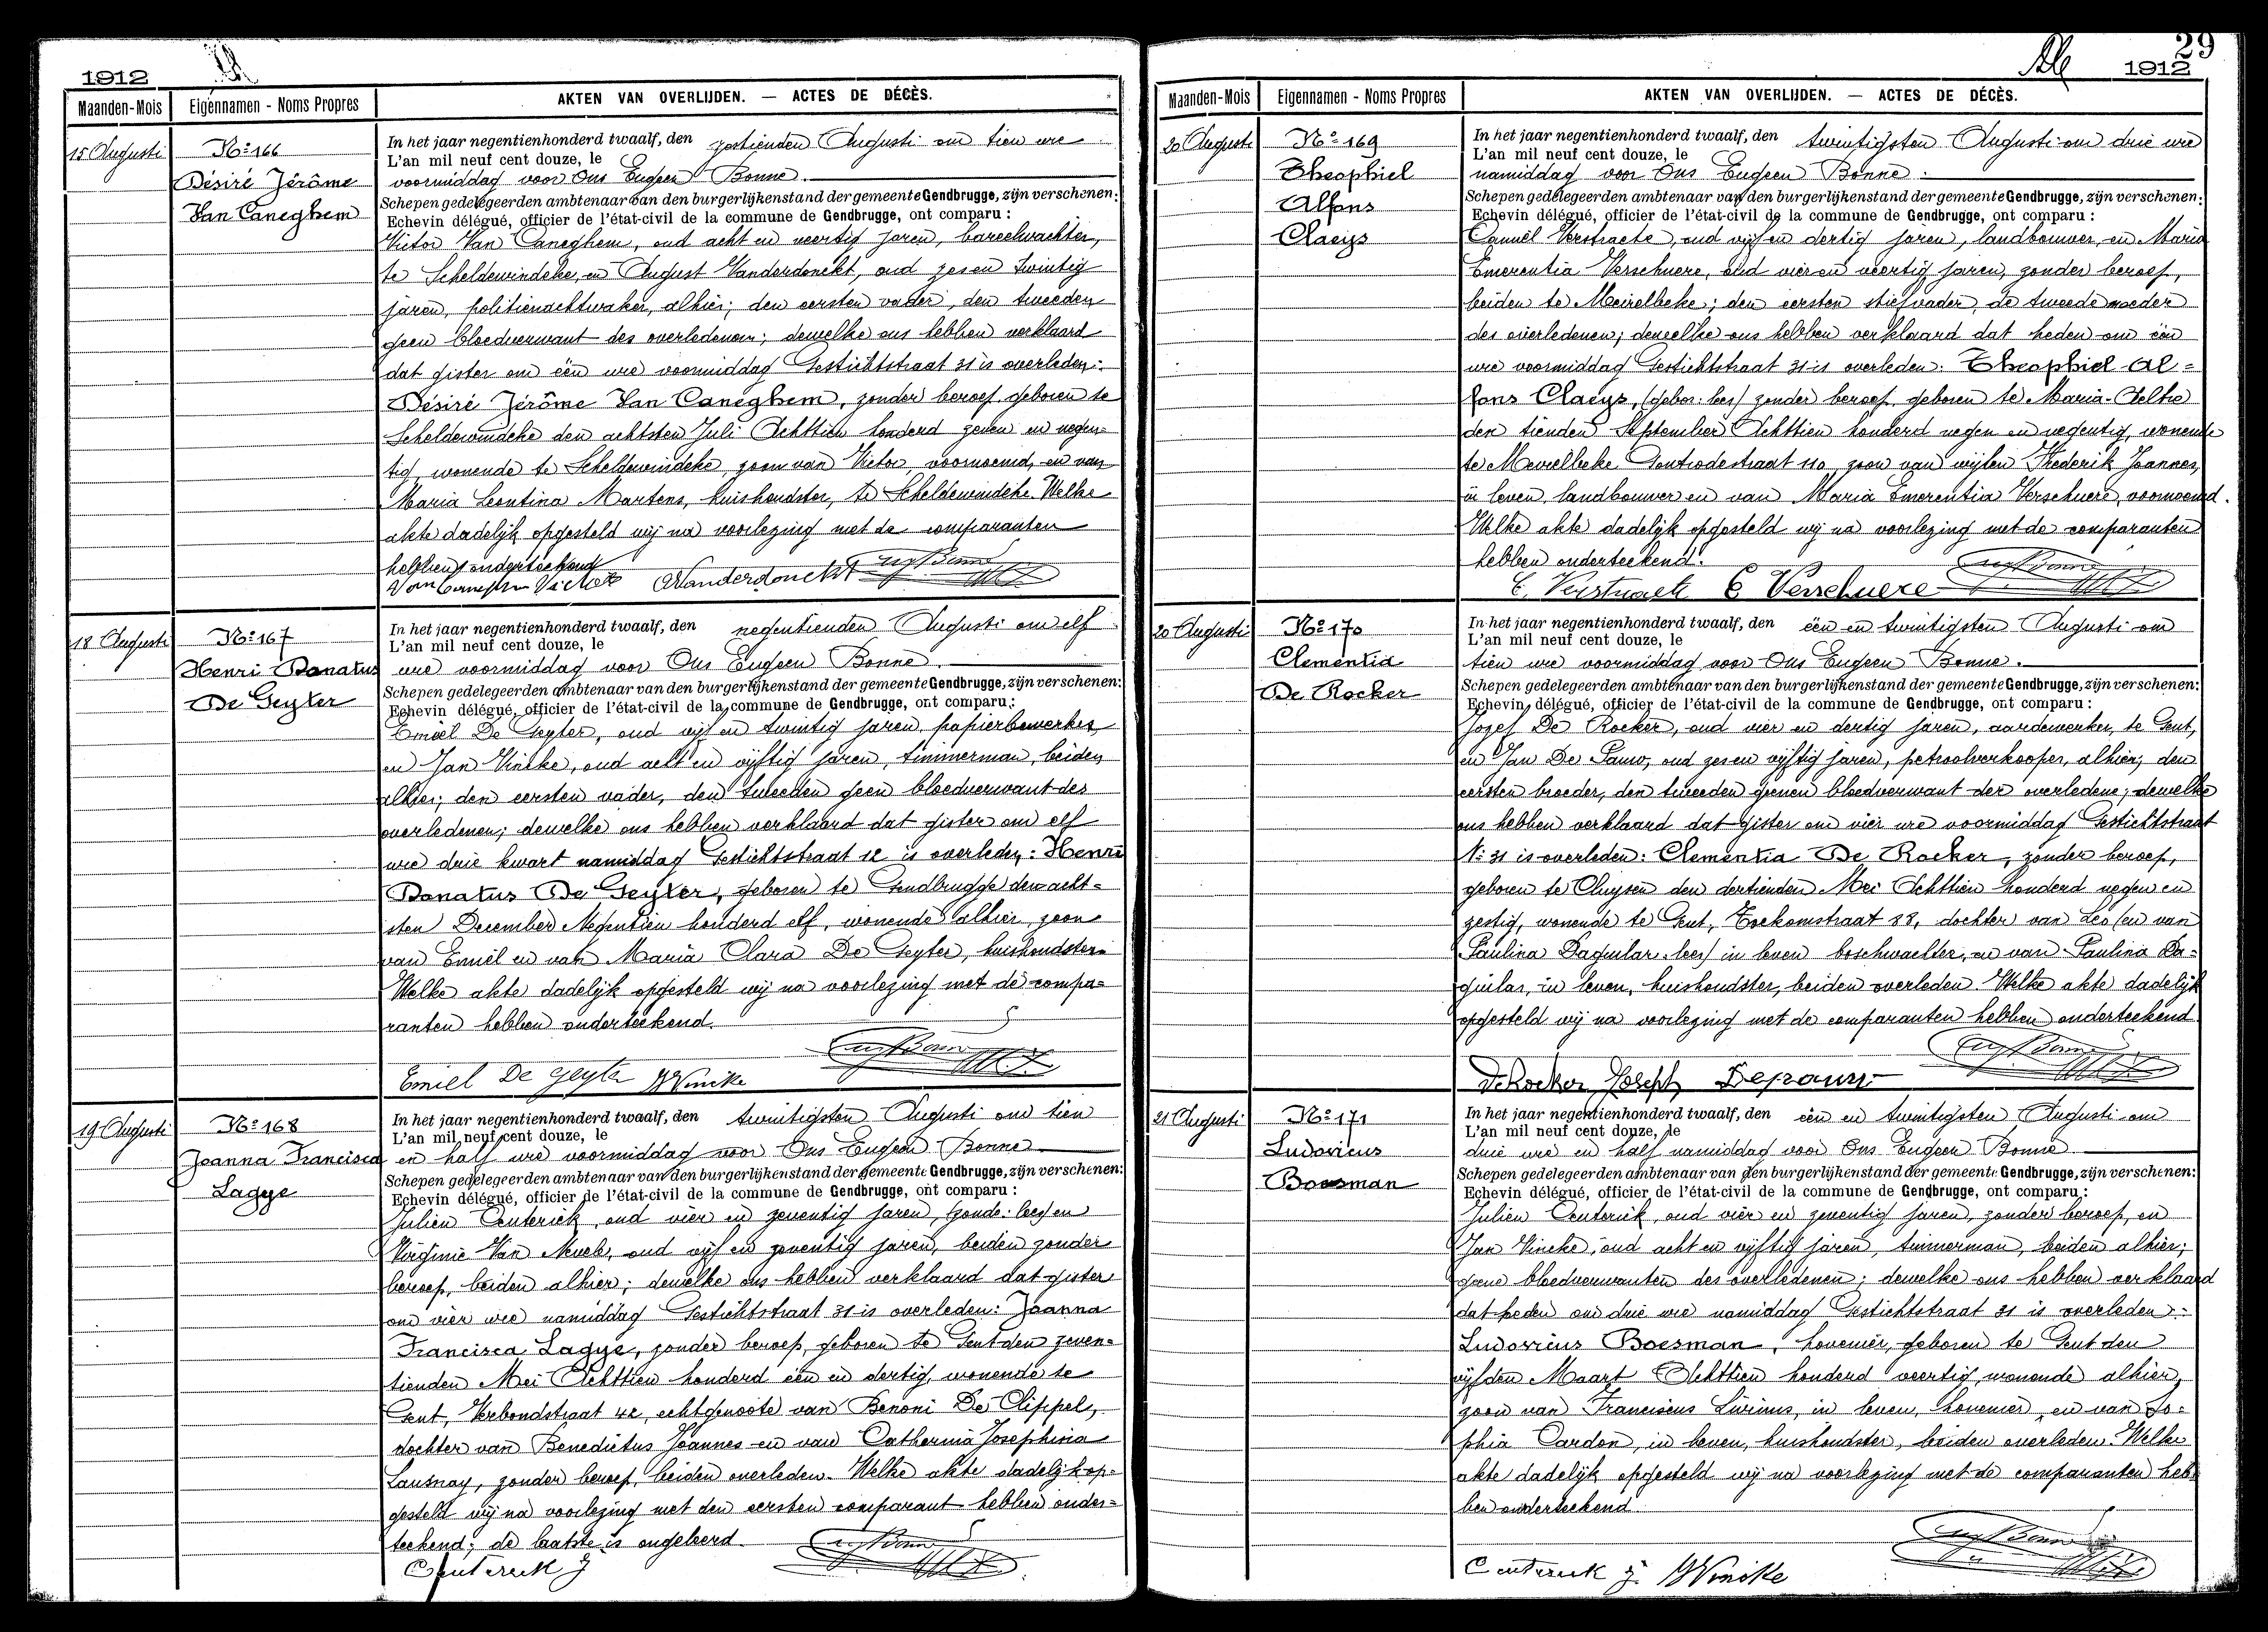 1912
Maanden-Mois
Eigennamen - Noms Propres
AKTEN VAN OVERLIJDEN. — ACTES DE DÉCÈS.
15 Augusti
No 166
Désiré Jérôme
Van Caneghem
In het jaar negentienhonderd twaalf, den zestienden Augusti om tien ure
L'an mil neuf cent douze, le
voormiddag voor Ons Eugeen Bonne.
Schepen gedelegeerden ambtenaar van den burgerlijkenstand der gemeente Gendbrugge, zijn verschenen:
Echevin délégué, officier de l'état-civil de la commune de Gendbrugge, ont comparu :
Victor Van Caneghem, oud acht en veertig jaren, bareelwachter,
te Scheldewindeke, en August Vanderdonckt, oud zes en twintig
jaren, politienachtwaker, alhier; den eersten vader, den tweeden
geen bloedverwant des overledenen; dewelke ons hebben verklaard
dat gister om één ure voormiddag Gestichtstraat 31 is overleden:
Désiré Jérôme Van Caneghem, zonder beroep, geboren te
Scheldewindeke den achtsten Juli Achttien honderd zeven en negen=
tig, wonende te Scheldewindeke, zoon van Victor, voornoemd, en van
Maria Leontina Martens, huishoudster, te Scheldewindeke. Welke
akte dadelijk opgesteld wij na voorlezing met de comparanten
hebben onderteekend
Van Caneghem Victor AVanderdonckt
18 Augusti
No 167
Henri Donatus
De Geyter
In het jaar negentienhonderd twaalf, den negentienden Augusti om elf
L'an mil neuf cent douze, le
ure voormiddag voor Ons Eugeen Bonne.
Schepen gedelegeerden ambtenaar van den burgerlijkenstand der gemeente Gendbrugge, zijn verschenen:
Echevin délégué, officier de l'état-civil de la commune de Gendbrugge, ont comparu :
Emiel De Geyter, oud vijf en twintig jaren, papierbewerker,
en Jan Vincke, oud acht en vijftig jaren, timmerman, beiden
alhier; den eersten vader, den tweeden geen bloedverwant des
overledenen; dewelke ons hebben verklaard dat gister om elf
ure drie kwart namiddag Gestichtstraat 12 is overleden: Henri
Donatus De Geyter, geboren te Gendbrugge den acht=
sten December Negentien honderd elf, wonende alhier, zoon
van Emiel en van Maria Clara De Geyter, huishoudster.
Welke akte dadelijk opgesteld wij na voorlezing met de compa=
ranten hebben onderteekend.
Emiel De Geyter JVincke
19 Augusti
No 168
Joanna Francisca
Lagye
In het jaar negentienhonderd twaalf, den twintigsten Augusti om tien
L'an mil neuf cent douze, le
en half ure voormiddag voor Ons Eugeen Bonne
Schepen gedelegeerden ambtenaar van den burgerlijkenstand der gemeente Gendbrugge, zijn verschenen:
Echevin délégué, officier de l'état-civil de la commune de Gendbrugge, ont comparu :
Julien Centerick, oud vier en zeventig jaren, (zonde: lees) en
Virginie Van oud vijf en zeventig jaren, beiden zonder
beroep, beiden alhier; dewelke ons hebben verklaard dat gister
om vier ure namiddag Gestichtstraat 31 is overleden: Joanna
Francisca Lagye, zonder beroep, geboren te Gent den zeven=
tienden Mei Achttien honderd één en dertig, wonende te
Gent, Verbondstraat 42, echtgenoote van Benoni De Clippel,
dochter van Benedictus Joannes en van Catherina Josephina
Lausnay, zonder beroep, beiden overleden. Welke akte dadelijk op=
gesteld wij na voorlezing met den eersten comparant hebben onder=
teekend; de laatste is ongeleerd.
Centerick J
29
1912
Maanden-Mois
Eigennamen - Noms Propres
AKTEN VAN OVERLIJDEN. — ACTES DE DÉCÈS.
20 Augusti
No 169
Theophiel
Alfons
Claeys
In het jaar negentienhonderd twaalf, den twintigsten Augusti om drie ure
L'an mil neuf cent douze, le
namiddag voor Ons Eugeen Bonne.
Schepen gedelegeerden ambtenaar van den burgerlijkenstand der gemeente Gendbrugge, zijn verschenen:
Echevin délégué, officier de l'état-civil de la commune de Gendbrugge, ont comparu :
Camiel Verstraete, oud vijf en dertig jaren, landbouwer, en Maria
Emerentia Verschuere, oud vier en veertig jaren, zonder beroep,
beiden te Meirelbeke; den eersten stiefvader, de tweede moeder
des overledenen; dewelke ons hebben verklaard dat heden om één
ure voormiddag Gestichtstraat 31 is overleden: Theophiel Al=
fons Claeys, (gebor: lees) zonder beroep, geboren te Maria-Aeltre
den tienden September Achttien honderd negen en negentig, wonende
te Meirelbeke Gontrodestraat 110, zoon van wijlen Frederik Joannes,
in leven, landbouwer en van Maria Emerentia Verschuere, voornoemd.
Welke akte dadelijk opgesteld wij na voorlezing met de comparanten
hebben onderteekend.
C. Verstraete E Verschuere
20 Augusti
No 170
Clementia
De Rocker
In het jaar negentienhonderd twaalf, den één en twintigsten Augusti om
L'an mil neuf cent douze, le
tien ure voormiddag voor Ons Eugeen Bonne.
Schepen gedelegeerden ambtenaar van den burgerlijkenstand der gemeente Gendbrugge, zijn verschenen:
Echevin délégué, officier de l'état-civil de la commune de Gendbrugge, ont comparu :
Jozef De Rocker, oud vier en dertig jaren, aardewerker, te Gent,
en Jan De Pauw, oud zes en vijftig jaren, petroolverkooper, alhier; den
eersten broeder, den tweeden geenen bloedverwant der overledene; dewelke
ons hebben verklaard dat gister om vier ure voormiddag Gestichtstraat
No 31 is overleden: Clementia De Rocker, zonder beroep,
geboren te Cluysen den dertienden Mei Achttien honderd negen en
zestig, wonende te Gent, Toekomstraat 88, dochter van Leo (en van
Paulina Daquilar. lees) in leven boschwachter, en van Paulina Da=
quilar, in leven, huishoudster, beiden overleden. Welke akte dadelijk
opgesteld wij na voorlezing met de comparanten hebben onderteekend
DeRocker Joseph Depauw
21 Augusti
No 171
Ludovicus
Boesman
In het jaar negentienhonderd twaalf, den één en twintigsten Augusti om
L'an mil neuf cent douze, le
drie ure en half namiddag voor Ons Eugeen Bonne
Schepen gedelegeerden ambtenaar van den burgerlijkenstand der gemeente Gendbrugge, zijn verschenen:
Echevin délégué, officier de l'état-civil de la commune de Gendbrugge, ont comparu :
Julien Centerick, oud vier en zeventig jaren, zonder beroep, en
Jan Vincke, oud acht en vijftig jaren, timmerman, beiden alhier;
geene bloedverwanten des overledenen; dewelke ons hebben verklaard
dat heden om drie ure namiddag Gestichtstraat 31 is overleden:
Ludovicus Boesman, hovenier, geboren te Gent den
vijfden Maart Achttien honderd veertig, wonende alhier,
zoon van Franciscus Livinus, in leven, hovenier, en van So=
phia Cardon, in leven, huishoudster, beiden overleden. Welke
akte dadelijk opgesteld wij na voorlezing met de comparanten heb=
ben onderteekend.
Centerick J. JVincke